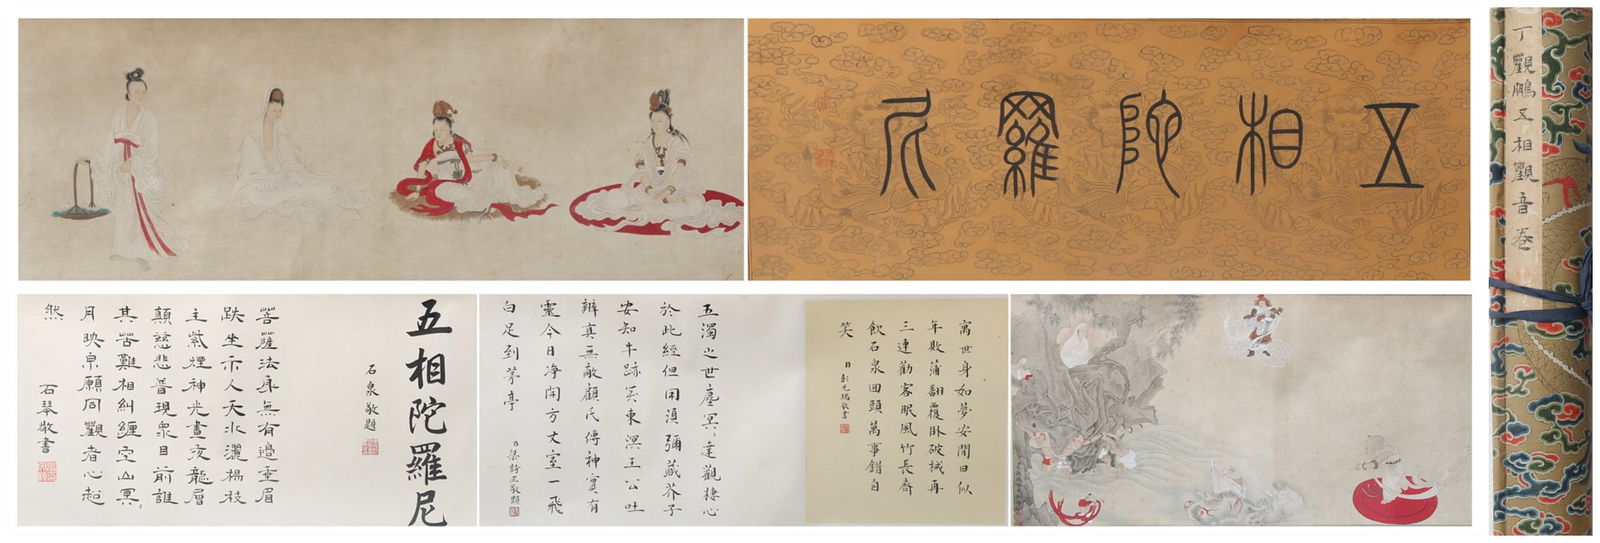 五相陀羅尼
丁觀鵬五相觀音卷
五相陀羅尼
石泉敬題
菩薩法身無有邊垂眉
趺坐示人天水灑楊枝
主紫煙神光晝夜龍層
顛慈悲普現眾目前誰
其苦難相糾纏空山冥〻
月映帛願同觀者心超
然
石琴敬書
五濁之世塵冥〻達觀棲心
於此經但困滇彌藏芥子
安知牛跡異東溟王公吐
辯真無敵顧氏傳神實有
靈今日净開方丈室一飛
白足到茅亭
梁詩正敬題
寓世身如夢安閒日似
年敗蒲翻覆臥破衲再
三連勸客眠風竹長齋
飲石泉回頭萬事錯自
笑
彭元瑞敬書